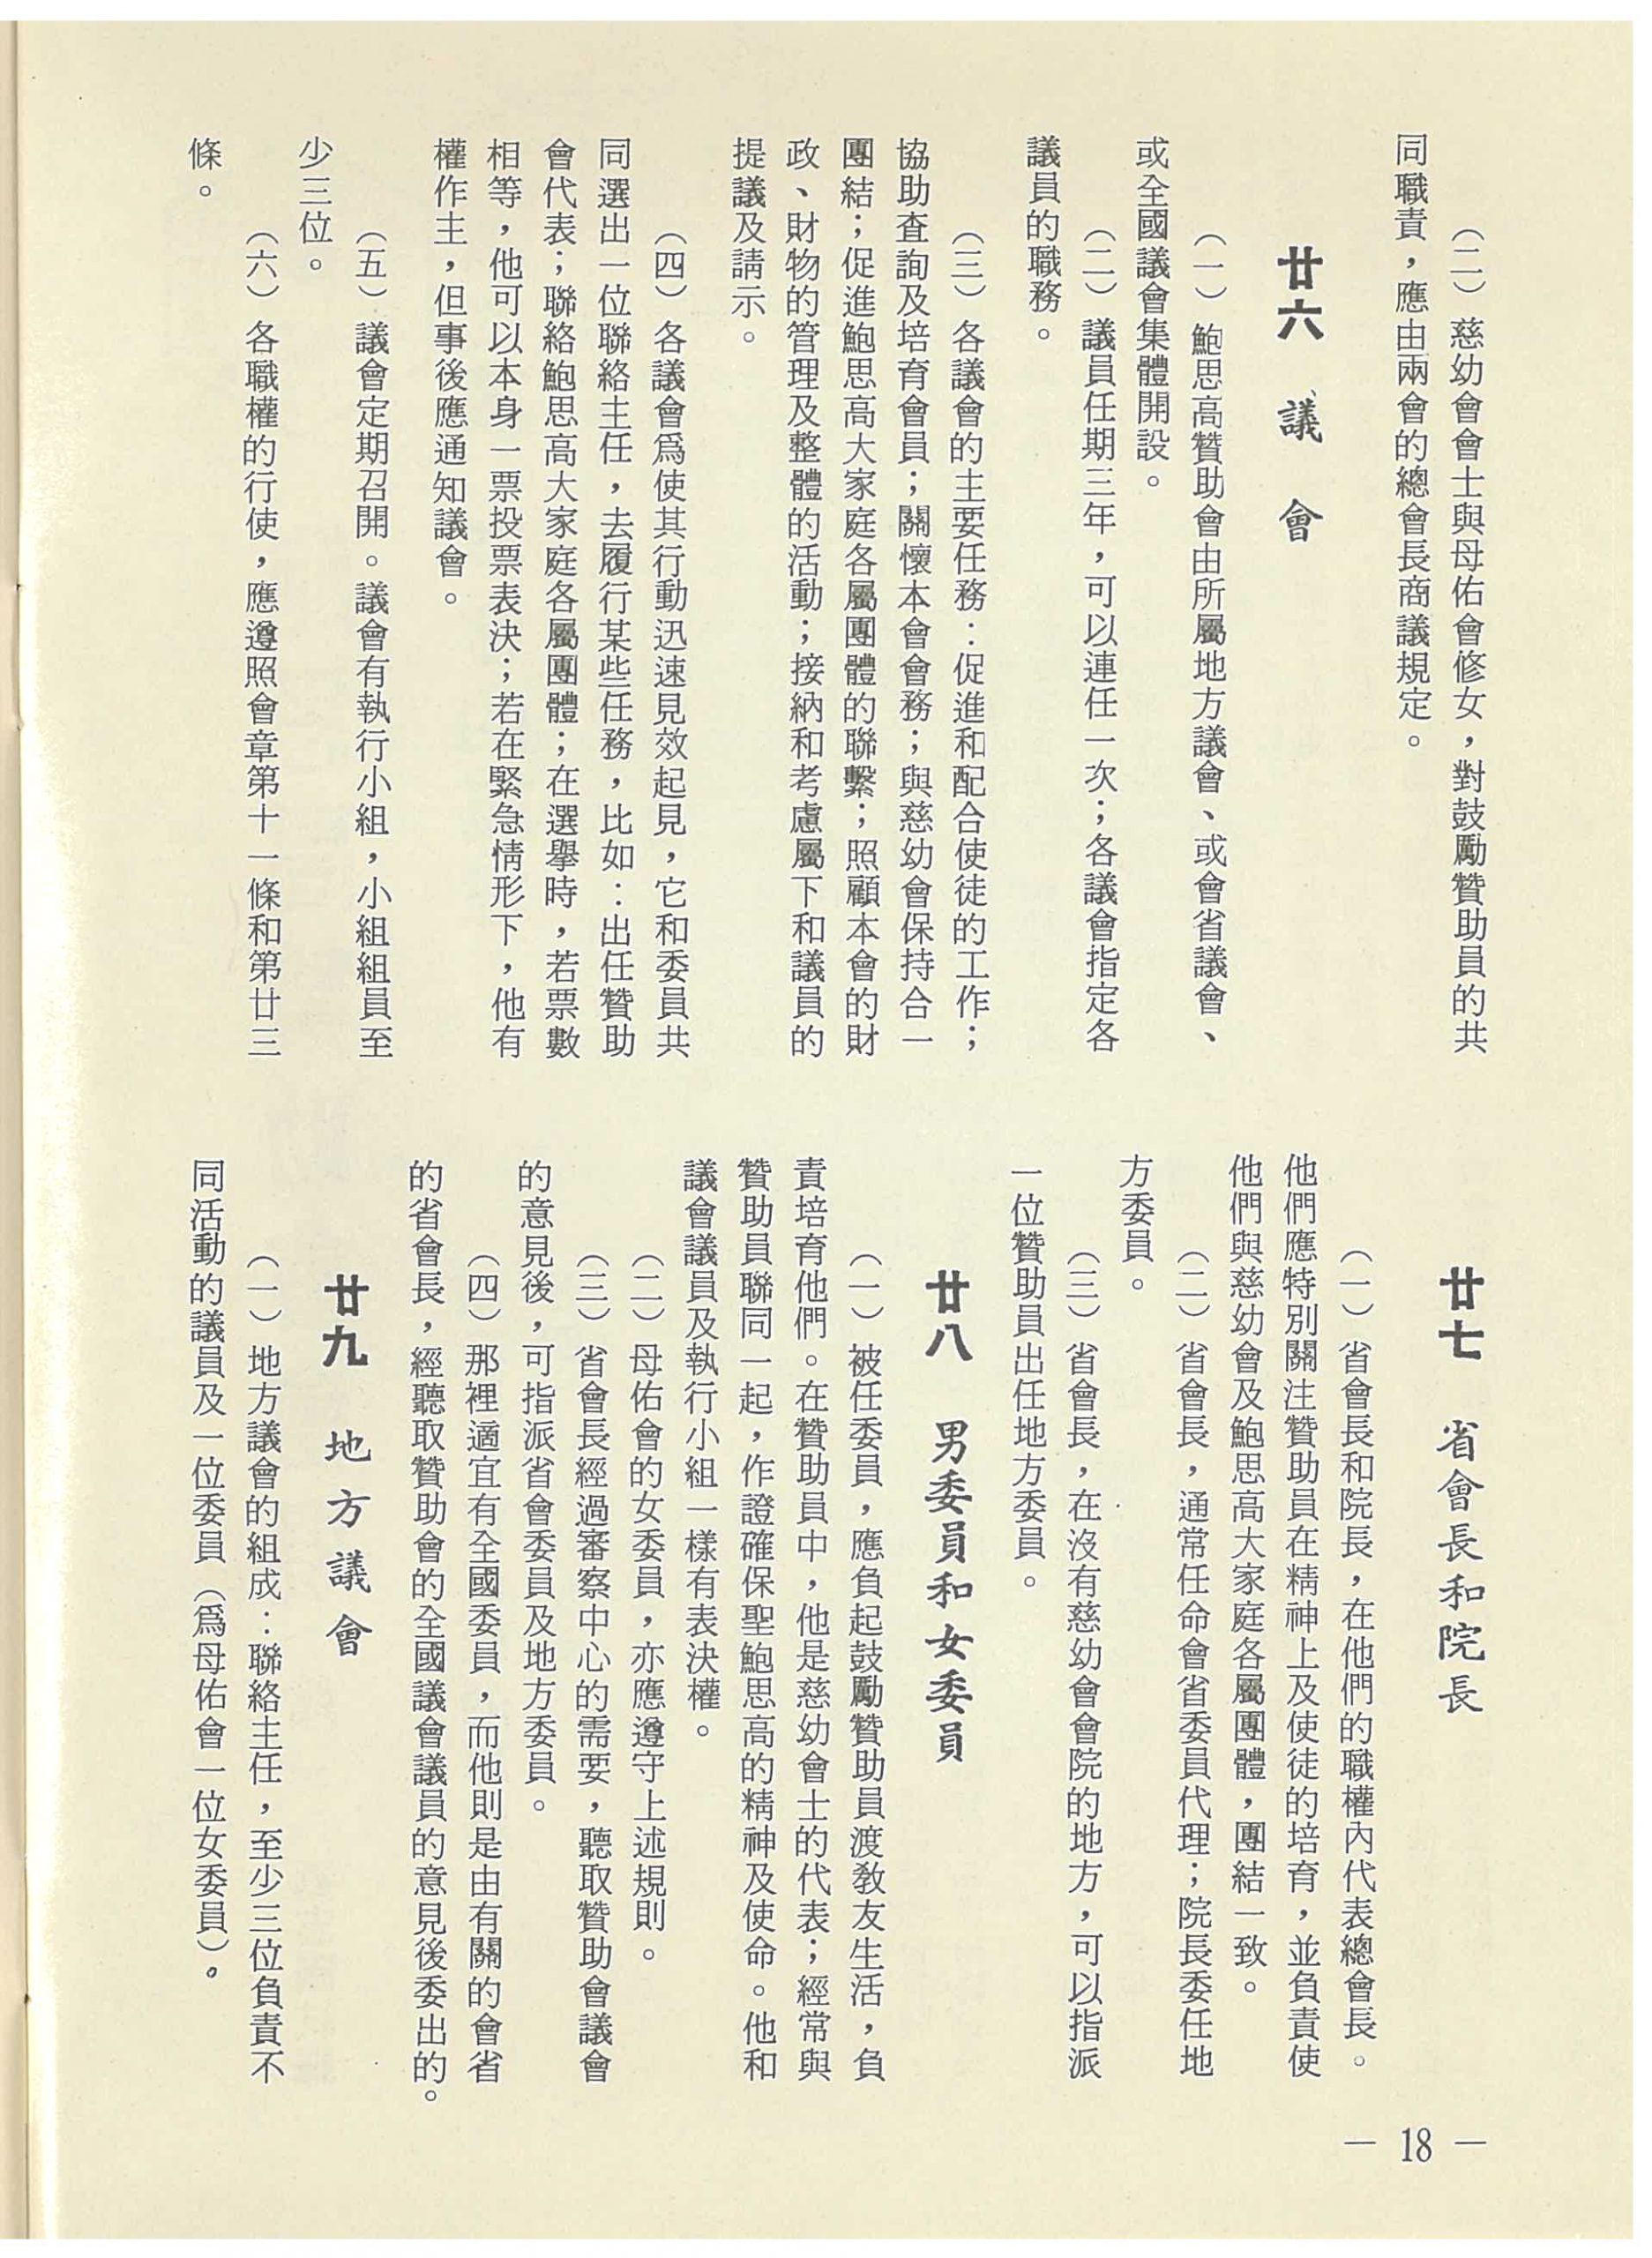 （二）慈幼會會士與母佑會修女，對鼓勵贊助員的共
同職責，應由兩會的總會長商議規定。
廿六　議　會
（一）鮑思高贊助會由所屬地方議會、或會省議會、
或全國議會集體開設。
（二）議員任期三年，可以連任一次；各議會指定各
議員的職務。
（三）各議會的主要任務：促進和配合使徒的工作；
協助查詢及培育會員；關懷本會會務；與慈幼會保持合一
團結；促進鮑思高大家庭各屬團體的聯繫；照顧本會的財
政、財物的管理及整體的活動；接納和考慮屬下和議員的
提議及請示。
（四）各議會爲使其行動迅速見效起見，它和委員共
同選出一位聯絡主任，去履行某些任務，比如：出任贊助
會代表；聯絡鮑思高大家庭各屬團體；在選舉時，若票數
相等，他可以本身一票投票表決；若在緊急情形下，他有
權作主，但事後應通知議會。
（五）議會定期召開。議會有執行小組，小組組員至
少三位。
（六）各職權的行使，應遵照會章第十一條和第廿三
條。
廿七　省會長和院長
（一）省會長和院長，在他們的職權內代表總會長。
他們應特別關注贊助員在精神上及使徒的培育，並負責使
他們與慈幼會及鮑思高大家庭各屬團體，團結一致。
（二）省會長，通常任命會省委員代理；院長委任地
方委員。
（三）省會長，在沒有慈幼會會院的地方，可以指派
一位贊助員出任地方委員。
廿八　男委員和女委員
（一）被任委員，應負起鼓勵贊助員渡教友生活，負
責培育他們。在贊助員中，他是慈幼會士的代表；經常與
贊助員聯同一起，作證確保聖鮑思高的精神及使命。他和
議會議員及執行小組一樣有表決權。
（二）母佑會的女委員，亦應遵守上述規則。
（三）省會長經過審察中心的需要，聽取贊助會議會
的意見後，可指派省會委員及地方委員。
（四）那裡適宜有全國委員，而他則是由有關的會省
的省會長，經聽取贊助會的全國議會議員的意見後委出的。
廿九　地方議會
（一）地方議會的組成：聯絡主任，至少三位負責不
同活動的議員及一位委員（爲母佑會一位女委員）。
— 18 —